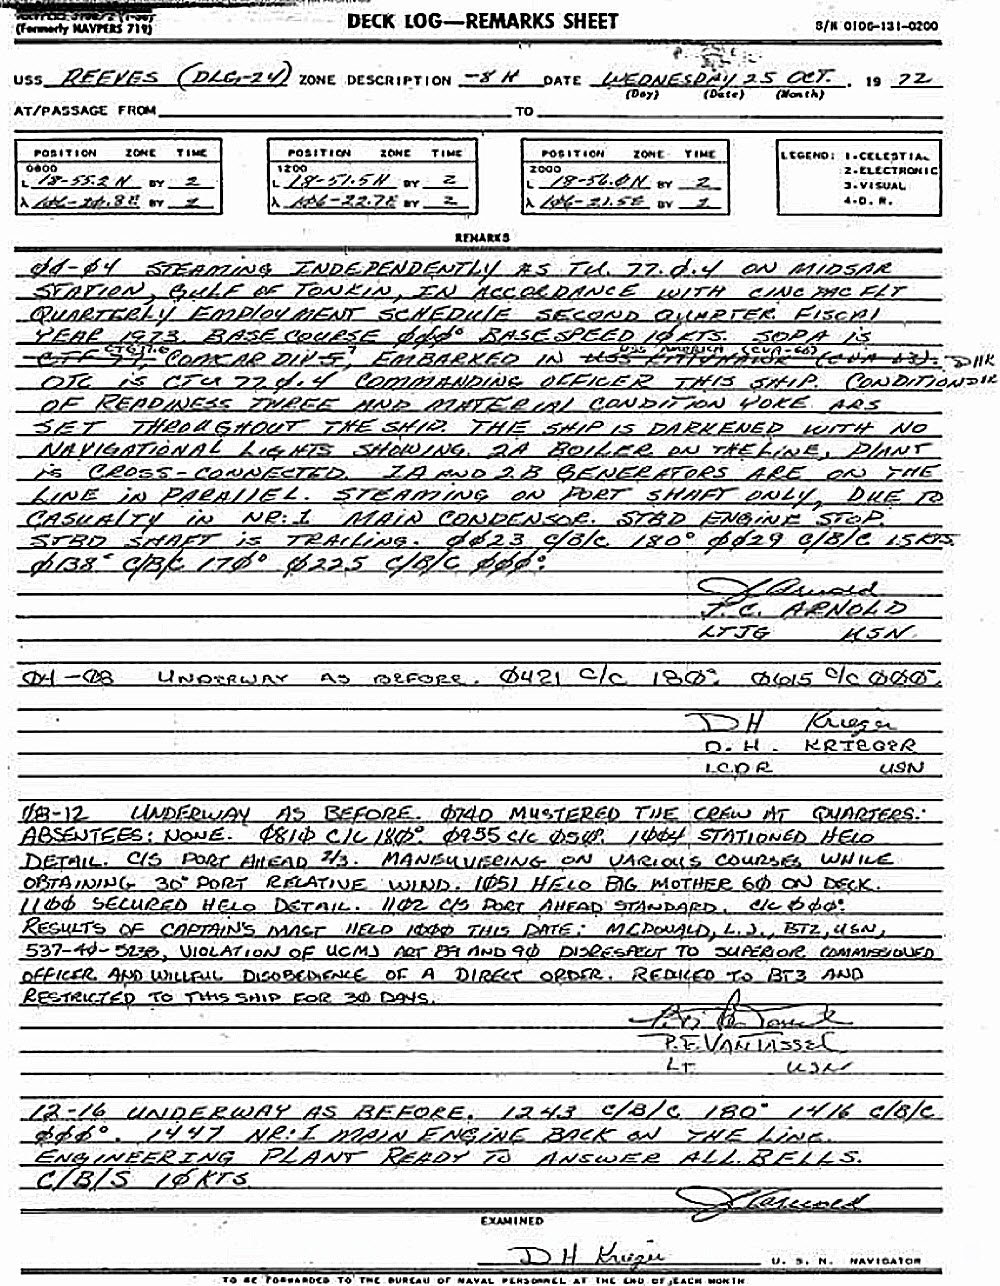 (Formerly NAVPERS 719)
DECK LOG—REMARKS SHEET
S/N 0106-131-0200
USS REEVES (DLG-24) ZONE DESCRIPTION -8H DATE WEDNESDAY 25 OCT. 19 72
(Day) (Date) (Month)
AT/PASSAGE FROM TO
POSITION ZONE TIME
0800
L 18-55.2 N BY 2
λ BY 2
POSITION ZONE TIME
1200
L 18-51.5N BY 2
λ 106-22.7E BY 2
POSITION ZONE TIME
2000
L 18-56.0N BY 2
λ 106-21.5E BY 2
LEGEND: 1-CELESTIAL
2-ELECTRONIC
3-VISUAL
4-D. R.
REMARKS
00-04 STEAMING INDEPENDENTLY AS TU. 77.0.4 ON MIDSAR
STATION, GULF OF TONKIN, IN ACCORDANCE WITH CINCPACFLT
QUARTERLY EMPLOYMENT SCHEDULE SECOND QUARTER FISCAL
YEAR 1973. BASE COURSE 000° BASE SPEED 10 KTS. SOPA IS
COMCARDIV EMBARKED IN USS AMERICA (CVA-66) DHK
OTC IS CTU 77.0.4 COMMANDING OFFICER THIS SHIP. CONDITION DHK
OF READINESS THREE AND MATERIAL CONDITION YOKE ARS
SET THROUGHOUT THE SHIP. THE SHIP IS DARKENED WITH NO
NAVIGATIONAL LIGHTS SHOWING. 2A BOILER ON THE LINE, PLANT
IS CROSS-CONNECTED. 2A AND 2B GENERATORS ARE ON THE
LINE IN PARALLEL. STEAMING ON PORT SHAFT ONLY, DUE TO
CASUALTY IN NR:1 MAIN CONDENSOR. STBD ENGINE STOP.
STBD SHAFT IS TRAILING. 0023 C/B/C 180° 0029 C/B/C 15KTS
0138° C/B/C 170° 0225 C/B/C 000°.
J Arnold
J.C. ARNOLD
LTJG USN
04-08 UNDERWAY AS BEFORE. 0421 C/C 180°. 0615 C/C 000°.
D H Krieger
D. H. KRIEGER
LCDR USN
08-12 UNDERWAY AS BEFORE. 0740 MUSTERED THE CREW AT QUARTERS:
ABSENTEES: NONE. 0810 C/C 180°. 0955 C/C 050°. 1004 STATIONED HELO
DETAIL. C/S PORT AHEAD 2/3. MANEUVERING ON VARIOUS COURSES WHILE
OBTAINING 30° PORT RELATIVE WIND. 1051 HELO BIG MOTHER 60 ON DECK.
1100 SECURED HELO DETAIL. 1102 C/S PORT AHEAD STANDARD. C/C 000°.
RESULTS OF CAPTAIN'S MAST HELD 1000 THIS DATE: MCDONALD, L.J., BT2, USN,
VIOLATION OF UCMJ ART 89 AND 90 DISRESPECT TO SUPERIOR COMMISSIONED
OFFICER AND WILLFUL DISOBEDIENCE OF A DIRECT ORDER. REDUCED TO BT3 AND
RESTRICTED TO THIS SHIP FOR 30 DAYS.
P.E. VANTASSEL
LT USN
12-16 UNDERWAY AS BEFORE. 1243 C/B/C 180° 1416 C/B/C
000°. 1447 NR:1 MAIN ENGINE BACK ON THE LINE.
ENGINEERING PLANT READY TO ANSWER ALL BELLS.
C/B/S 10 KTS
J Arnold
EXAMINED
D H Krieger U. S. N. NAVIGATOR
TO BE FORWARDED TO THE BUREAU OF NAVAL PERSONNEL AT THE END OF EACH MONTH